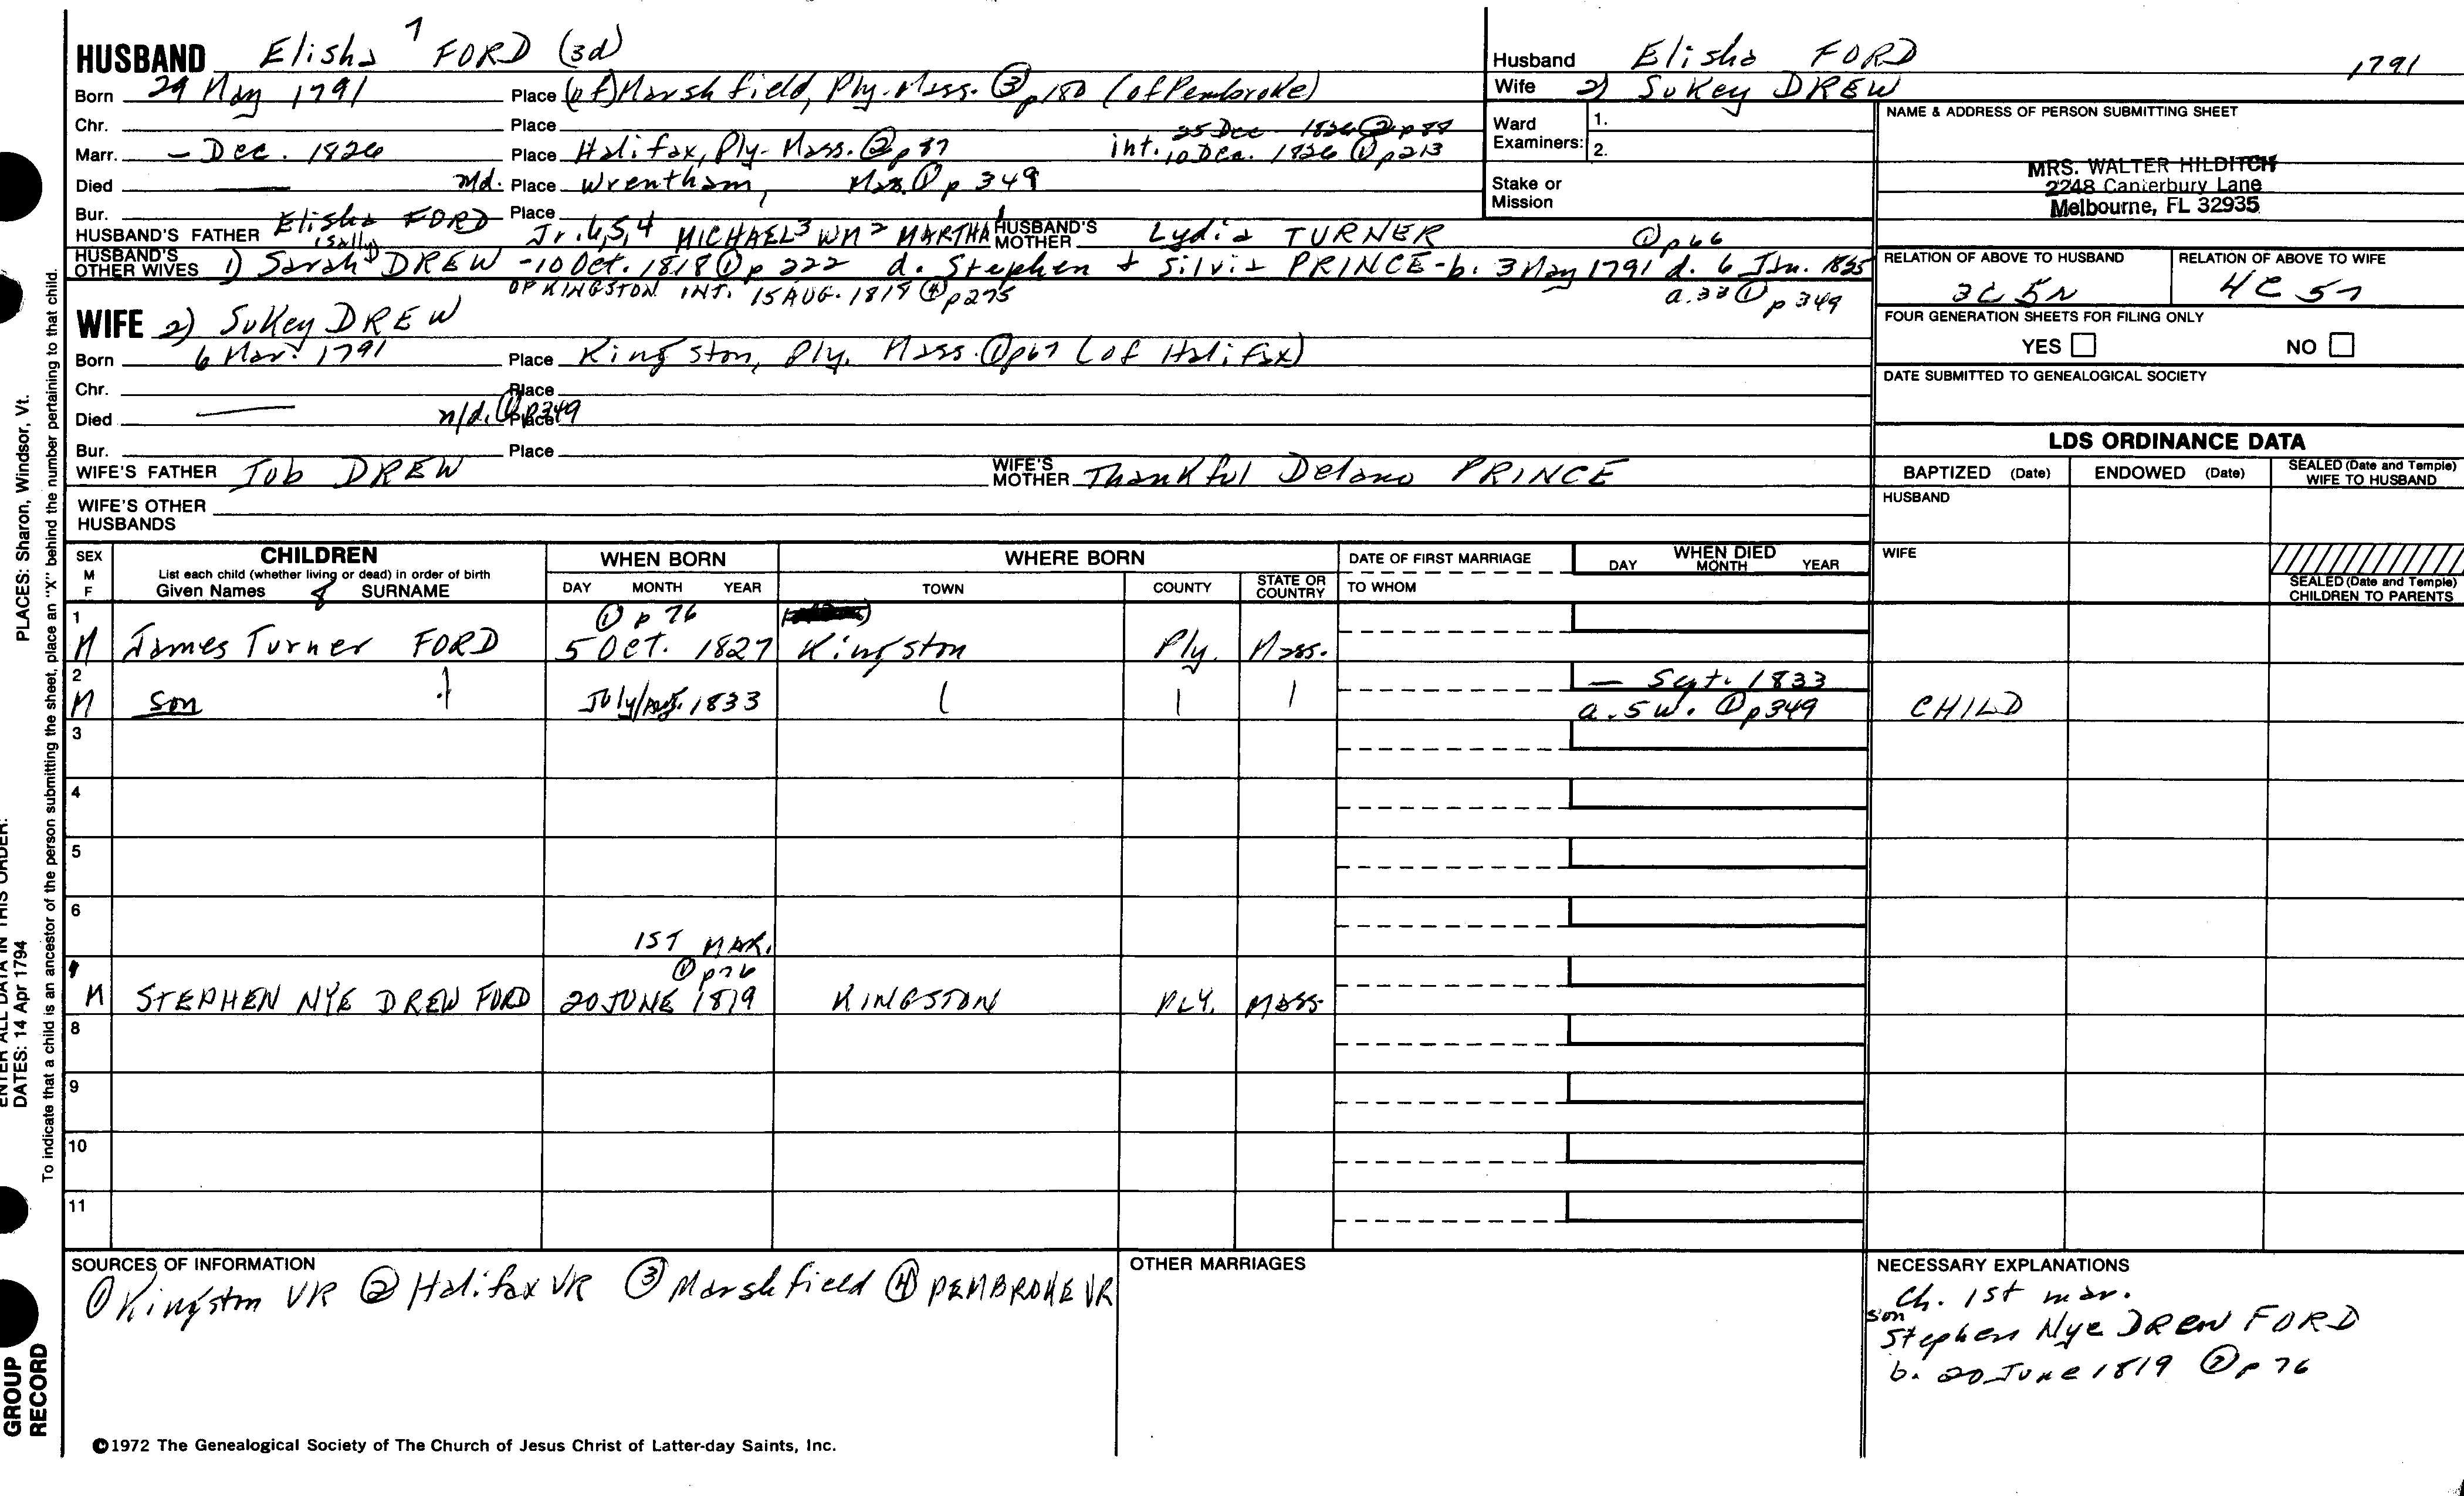 HUSBAND Elisha 7 FORD (3d)
Born 29 May 1791 Place (of) Marshfield, Ply. Mass. ③ p180 (of Pembroke)
Chr. Place
Marr. — Dec. 1826 Place Halifax, Ply. Mass. ② p37 int. 10 Dec. 1826 ① p213
25 Dec 1826 ②
Died — Place Wrentham, Mass. ① p 349
Bur. Place
HUSBAND'S FATHER Elisha FORD Jr. 6,5,4 MICHAEL 3 WM 2 MARTHA 1 HUSBAND'S MOTHER Lydia TURNER ① p66
HUSBAND'S OTHER WIVES 1) Sarah (Sally) DREW - 10 Oct. 1818 ① p 222 d. Stephen + Silvia PRINCE - b. 3 May 1791 d. 6 Jan. 1825
OF KINGSTON INT. 15 AUG. 1818 ④ p275 a. 33 ① p 349
WIFE 2) Sukey DREW
Born 6 Mar. 1791 Place Kingston, Ply. Mass. ① p67 (of Halifax)
Chr. Place
Died — n/d. ① p349 Place
Bur. Place
WIFE'S FATHER Job DREW WIFE'S MOTHER Thankful Delano PRINCE
WIFE'S OTHER HUSBANDS
Husband Elisha FORD 1791
Wife 2) Sukey DREW
Ward Examiners: 1.
2.
Stake or Mission
NAME & ADDRESS OF PERSON SUBMITTING SHEET
MRS. WALTER HILDITCH
2248 Canterbury Lane
Melbourne, FL 32935
RELATION OF ABOVE TO HUSBAND RELATION OF ABOVE TO WIFE
3C 5R 4C 5
FOUR GENERATION SHEETS FOR FILING ONLY
YES NO
DATE SUBMITTED TO GENEALOGICAL SOCIETY
LDS ORDINANCE DATA
BAPTIZED (Date) ENDOWED (Date) SEALED (Date and Temple) WIFE TO HUSBAND
HUSBAND
WIFE
SEALED (Date and Temple) CHILDREN TO PARENTS
SEX M F CHILDREN WHEN BORN WHERE BORN DATE OF FIRST MARRIAGE WHEN DIED
List each child (whether living or dead) in order of birth
Given Names 8 SURNAME DAY MONTH YEAR TOWN COUNTY STATE OR COUNTRY TO WHOM DAY MONTH YEAR
1 ① p 76
M James Turner FORD 5 Oct. 1827 Kingston Ply. Mass.
2 — Sept. 1833
M son July/Aug. 1833 a. 5 w. ① p349 CHILD
3
4
5
6
1ST MAR.
① p76
M STEPHEN NYE DREW FORD 20 JUNE 1819 KINGSTON PLY. MASS
8
9
10
11
SOURCES OF INFORMATION
① Kingston VR ② Halifax VR ③ Marshfield ④ PEMBROKE VR
OTHER MARRIAGES
NECESSARY EXPLANATIONS
Ch. 1st mar.
son
Stephen Nye DREW FORD
b. 20 June 1819 ② p 76
©1972 The Genealogical Society of The Church of Jesus Christ of Latter-day Saints, Inc.
PLACES: Sharon, Windsor, Vt.
ENTER ALL DATA IN THIS ORDER:
DATES: 14 Apr 1794
To indicate that a child is an ancestor of the person submitting the sheet, place an "X" behind the number pertaining to that child.
GROUP
RECORD